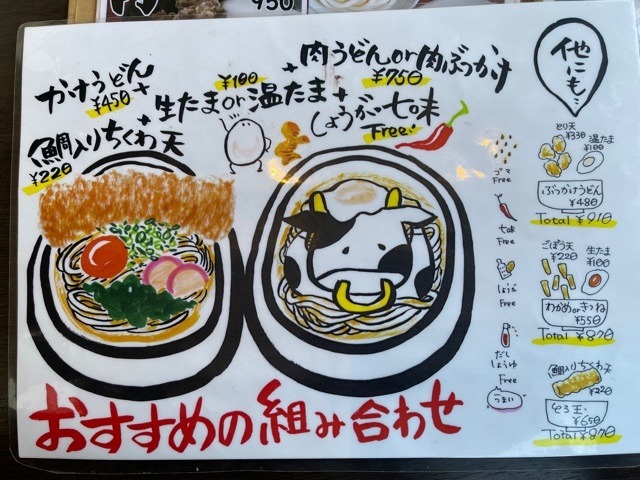 950
かけうどん
¥450
+
鯛入りちくわ天
¥220
+
¥100
生たまor温たま
+
肉うどんor肉ぶっかけ
¥750
+
しょうが・七味
Free!
他にも…
とり天
¥330
温たま
¥100
ぶっかけうどん
¥480
Total ¥910
ごぼう天
¥220
生たま
¥100
わかめorきつね
¥550
Total ¥870
鯛入りちくわ天
¥220
とろ玉
¥650
Total ¥870
ゴマ
Free
七味
Free
しょうが
Free
だし
しょうゆ
Free
うまい
おすすめの組み合わせ